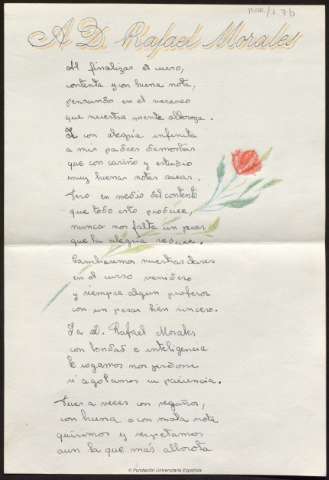 A D. Rafael Morales
Al finalizar el curso,
contenta y con buena nota,
pensando en el veraneo
que nuestra mente alboroza.
Y con alegria infinita
a mis padres demostrar
que con cariño y estudio
muy buenas notas sacar.
Pero en medio del contento
que todo esto produce,
nunca nos falta un pesar
que la alegria reduce.
Cambiaremos nuestras clases
en el curso venidero
y siempre algun profesor
con un pesar bien sincero.
Ya D. Rafael Morales
con bondad e inteligencia
le rogamos nos perdone
si agotamos su paciencia.
Pues a veces con regaños,
con buena o con mala nota
quisimos y respetamos
aun la que más alborota
© Fundación Universitaria Española